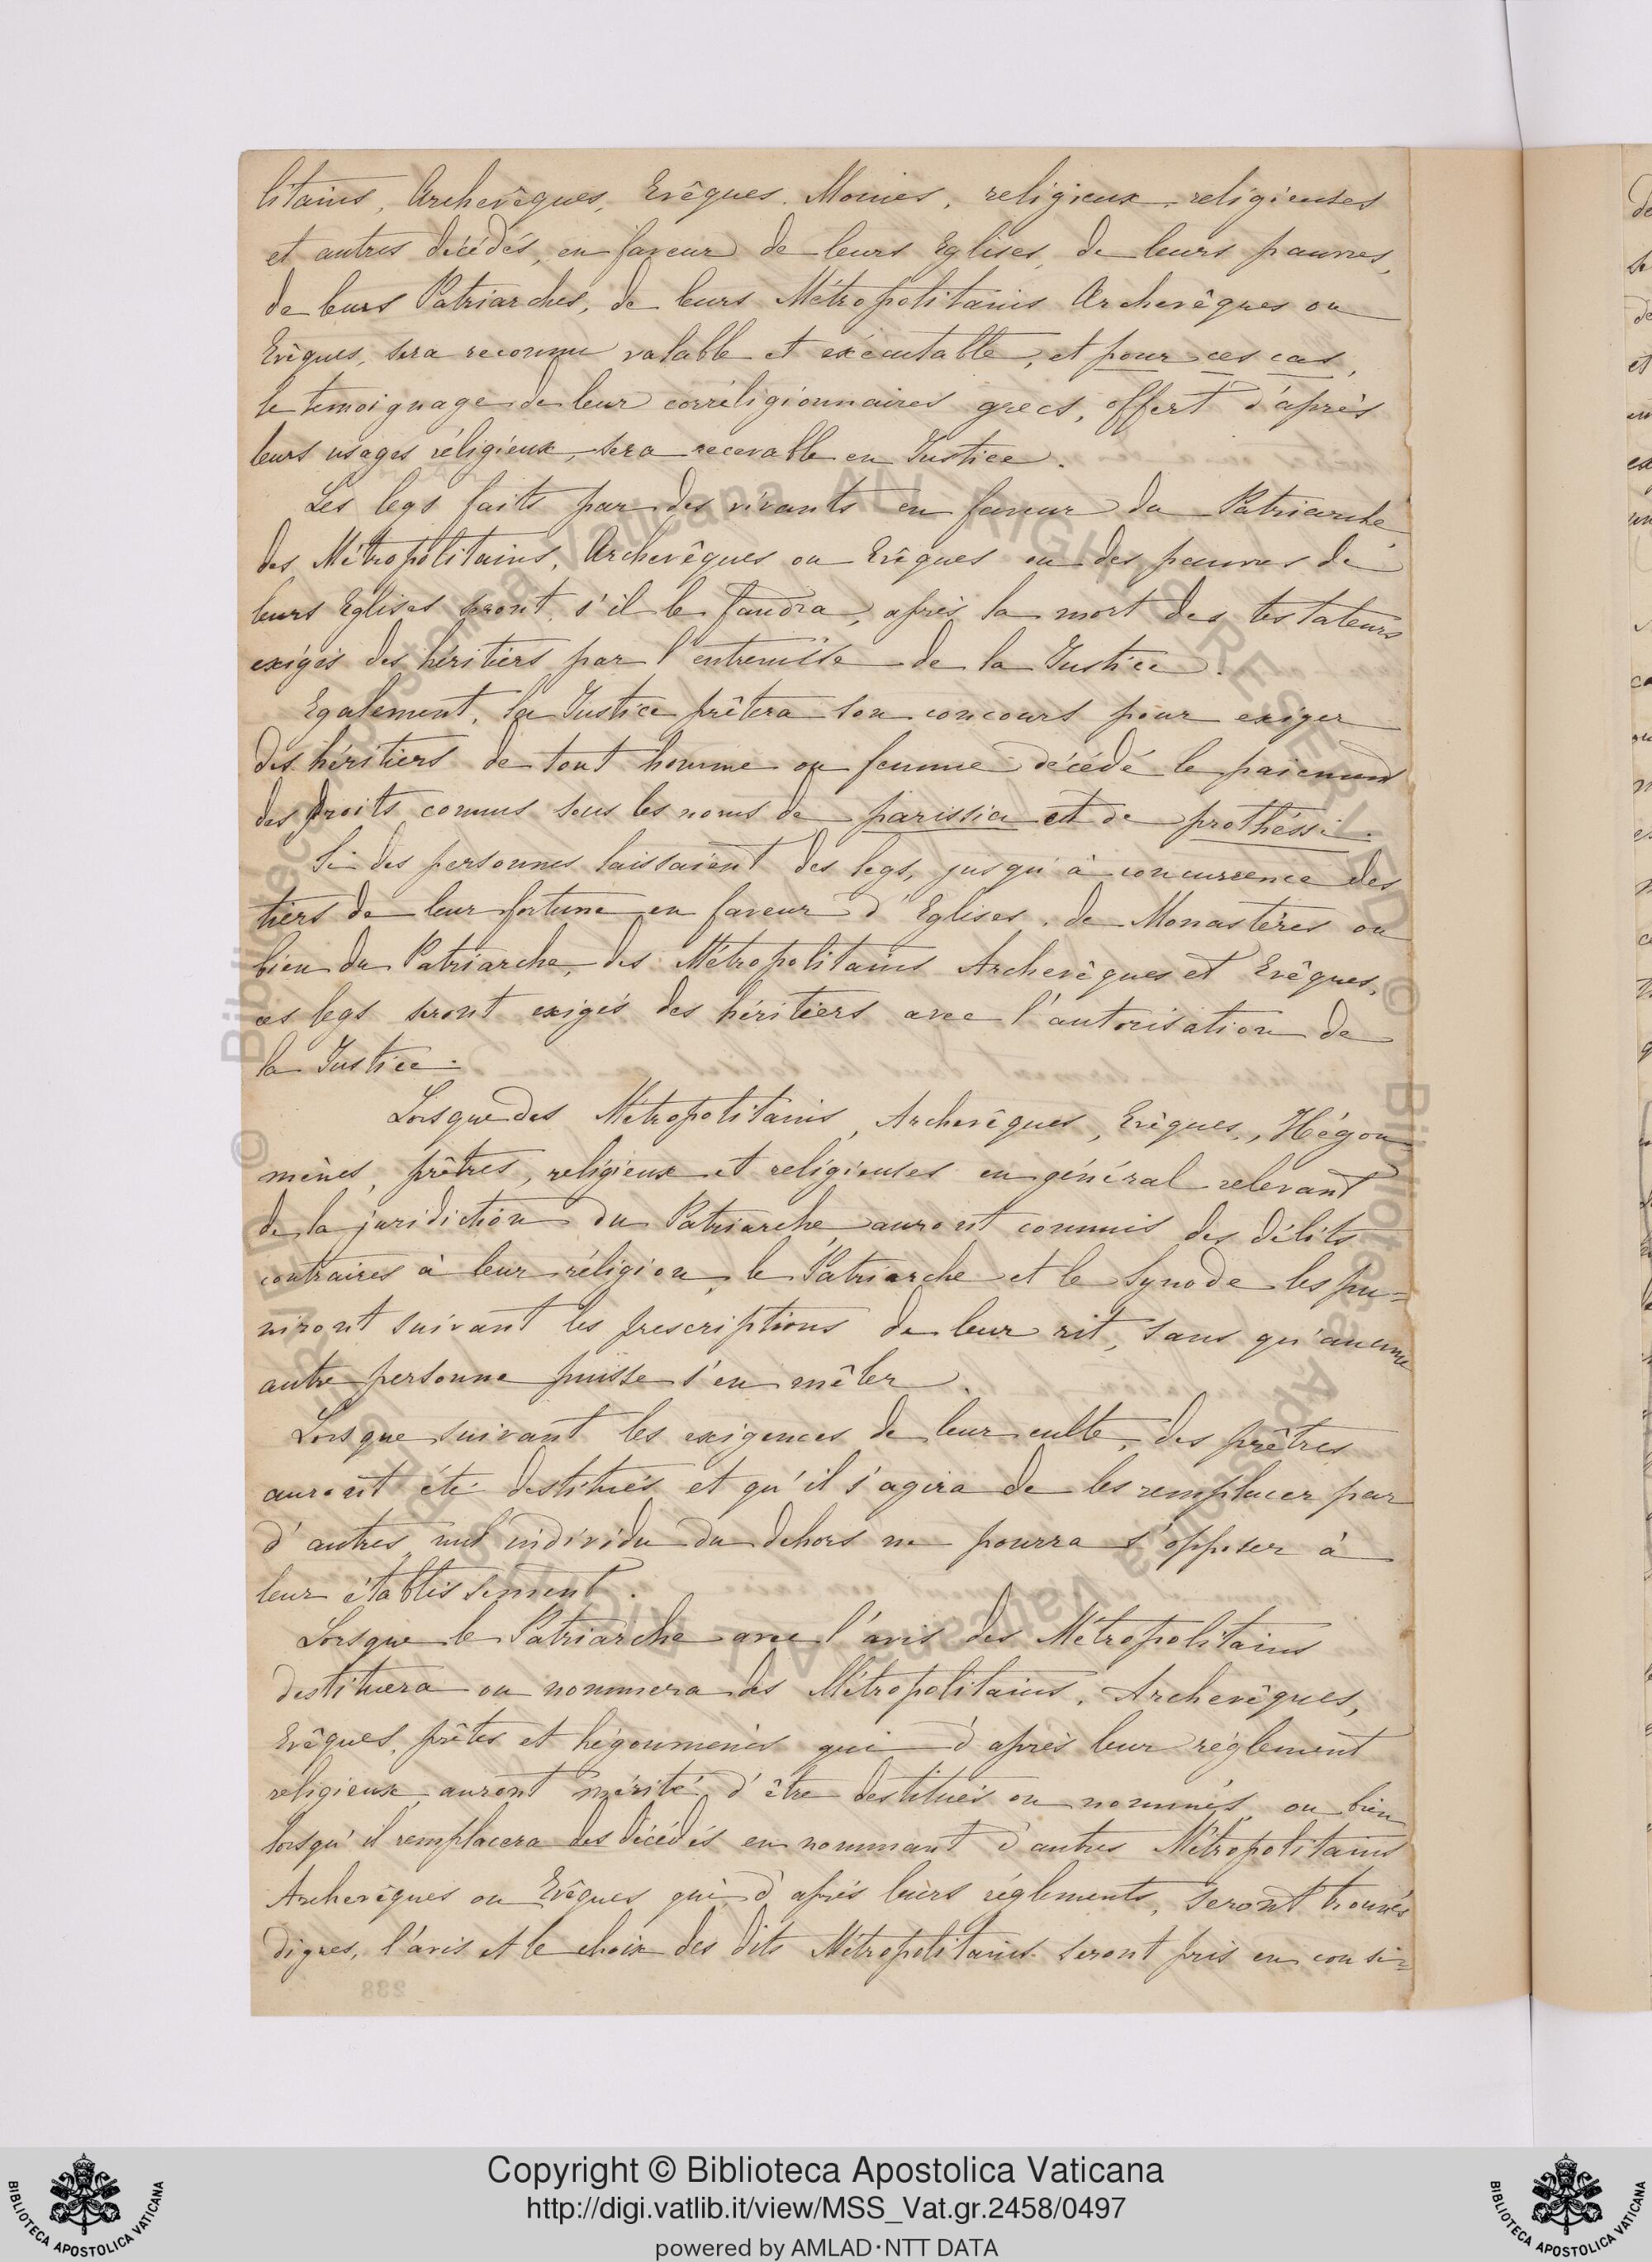 litains, Archevêques, Evêques. Moines, religieux, religieuses
et autres décédés, en faveur de leurs Eglises, de leurs pauvres,
de leurs Patriarches, de leurs Métropolitains Archevêques ou
Evêques, sera reconnu valable et exécutable, et pour ces cas,
le temoignage de leur corréligionnaires grecs, offert d'après
leurs usages réligieux, sera recevable en Justice.
Les legs faits par des vivants en faveur du Patriarche
des Métropolitains, Archevêques ou Evêques ou des pauvres de
leurs Eglises seront, s'il le faudra, après la mort des testateurs
exigés des héritiers par l'entremise de la Justice.
Egalement, la Justice prêtera son concours pour exiger
des héritiers de tout homme ou femme décédé le paiement
des droits connus sous les noms de parissia et de prothéssi.
Si des personnes laissaient des legs, jusqu'à concurrence des
tiers de leur fortune en faveur d'Eglises, de Monastères ou
bien du Patriarche, des Métropolitains Archevêques et Evêques,
ces legs seront exigés des héritiers avec l'autorisation de
la Justice.
Lorsque des Métropolitains, Archevêques, Evêques, Hégou-
mènes, prêtres, religieux et religieuses en général relevant
de la juridiction du Patriarche, auront commis des délits
contraires à leur réligion, le Patriarche et le Synode les pu=
niront suivant les prescriptions de leur rit, sans qu'aucune
autre personne puisse s'en mêler.
Lorsque suivant les exigences de leur culte, des prêtres
auront été destitués et qu'il s'agira de les remplacer par
d'autres nul individu du dehors ne pourra s'opposer à
leur établissement.
Lorsque le Patriarche avec l'avis des Métropolitains
destituera ou nommera des Métropolitains, Archevêques,
Evêques, prêtes et hégoumenès qui d'après leur réglement
religieux, auront mérité d'être destitués ou nommés, ou bien
lorsqu'il remplacera des décédés en nommant d'autres Métropolitains
Archevêques ou Evêques qui, d'après leurs réglements, seront trouvés
dignes, l'avis et le choix des dits Métropolitains seront pris en consi=
238
© Biblioteca Apostolica Vaticana ALL RIGHTS RESERVED
© Biblioteca Apostolica Vaticana ALL RIGHTS RESERVED
BIBLIOTECA APOSTOLICA VATICANA
Copyright © Biblioteca Apostolica Vaticana
http://digi.vatlib.it/view/MSS_Vat.gr.2458/0497
powered by AMLAD·NTT DATA
BIBLIOTECA APOSTOLICA VATICANA